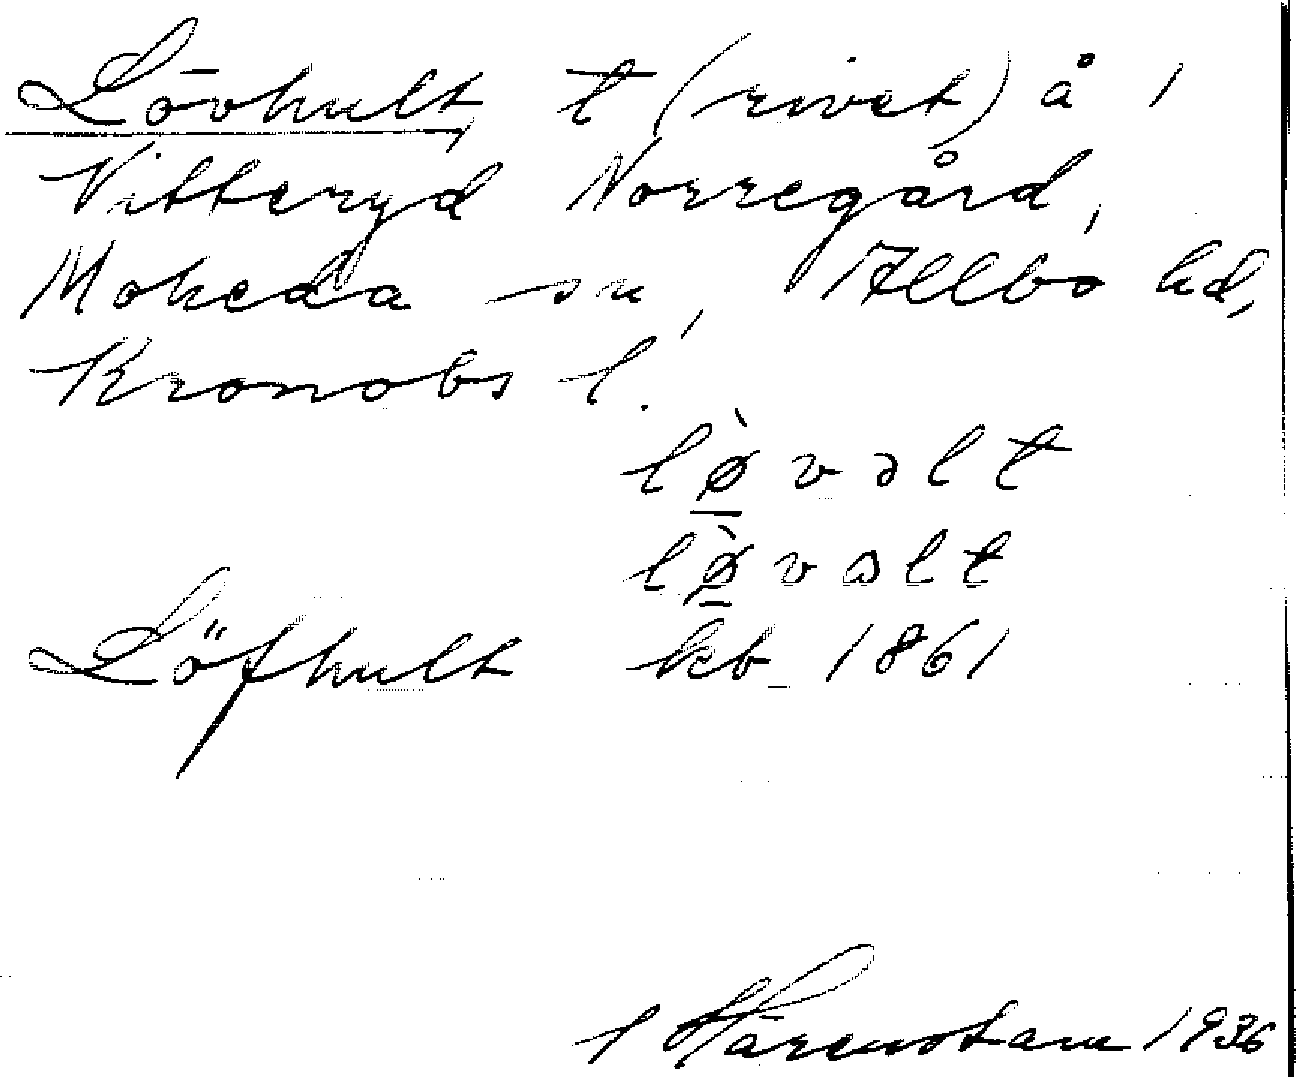 Lövhult, t (rivet) å 1
Vitteryd Norregård,
Moheda sn, Allbo hd,
Kronobs l.
lø̀vəlt
lø̀vɷlt
Löfhult kb 1861
1936